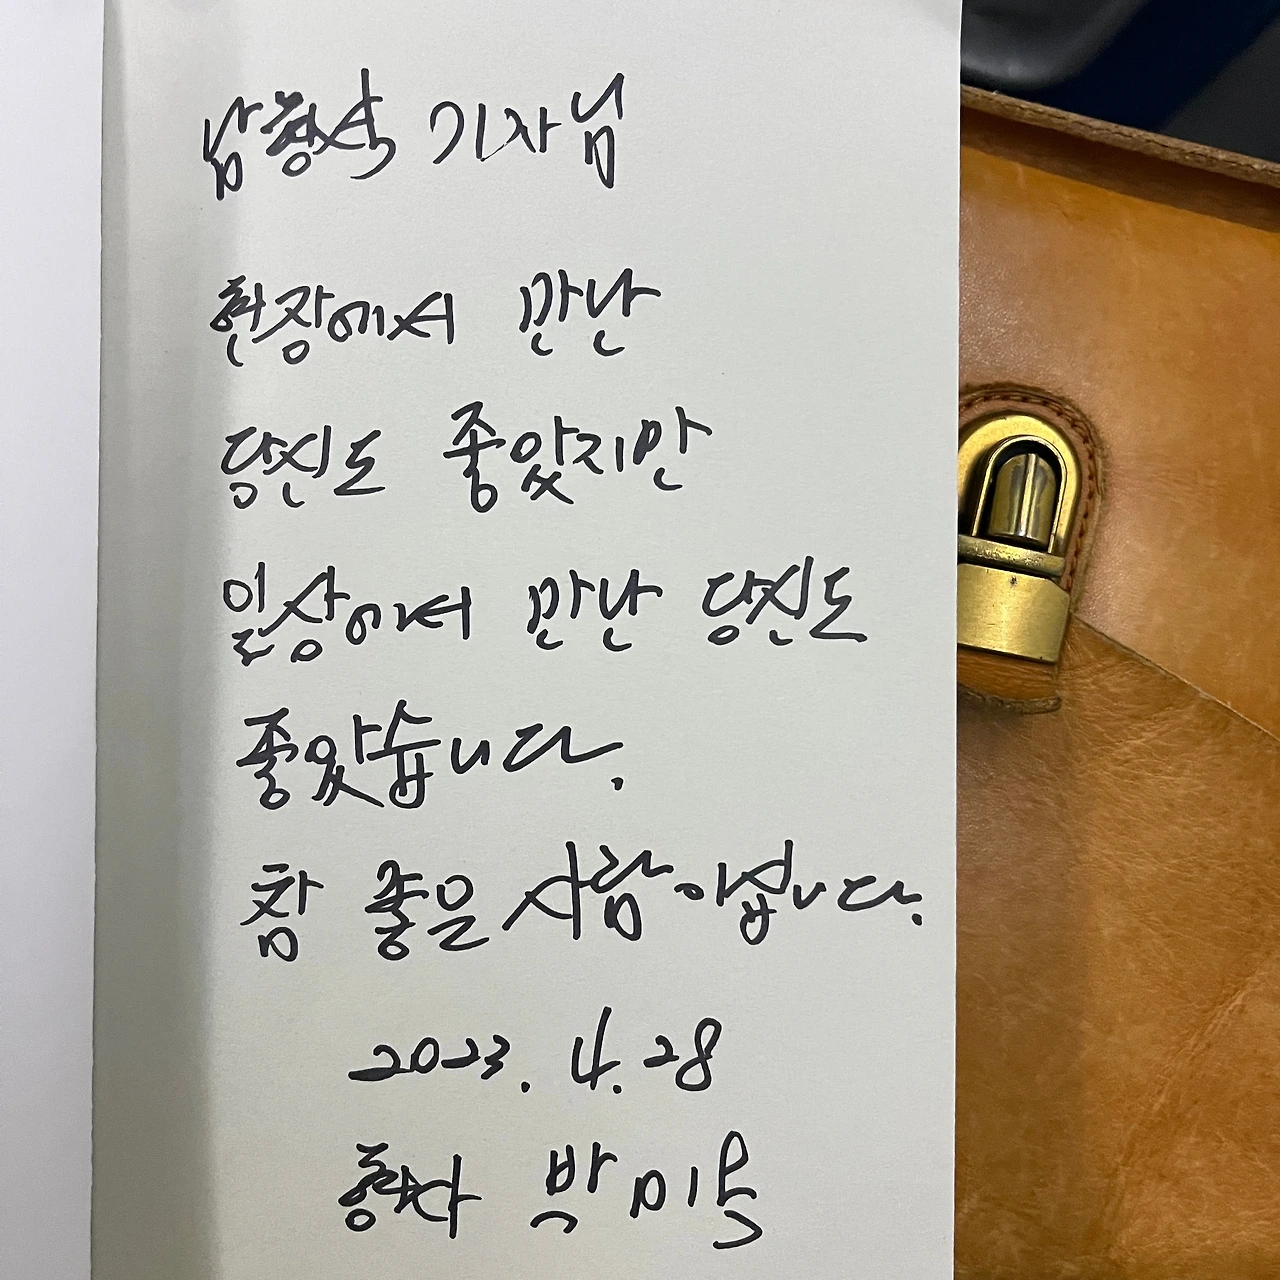 남형석 기자님
현장에서 만난
당신도 좋았지만
일상에서 만난 당신도
좋았습니다.
참 좋은 사람이십니다.
2023. 4. 28
형사 박미옥